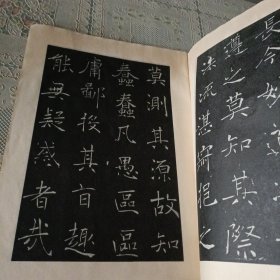 長今妙
遵之莫知其際
法流湛寂挹之
莫測其源故知
蠢蠢凡愚區區
庸鄙投其旨趣
能无疑惑者哉